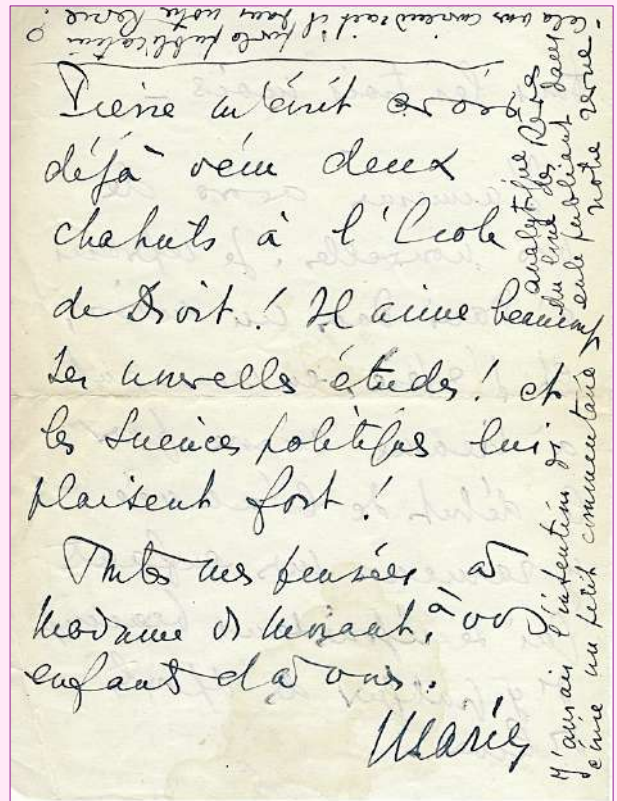 Pierre m'écrit avoir
déjà vécu deux
chahuts à l'École
de Droit ! Il aime beaucoup
ses nouvelles études ! et
les Sciences politiques lui
plaisent fort !
Toutes mes pensées à
Madame de à vos
enfants et à vous.
Marie
J'aurais l'intention d'
écrire un petit commentaire
analytique
du livre des Rêves
en le publiant dans
notre revue -
Cela vous conviendrait-il pour la publication
dans notre Revue ?